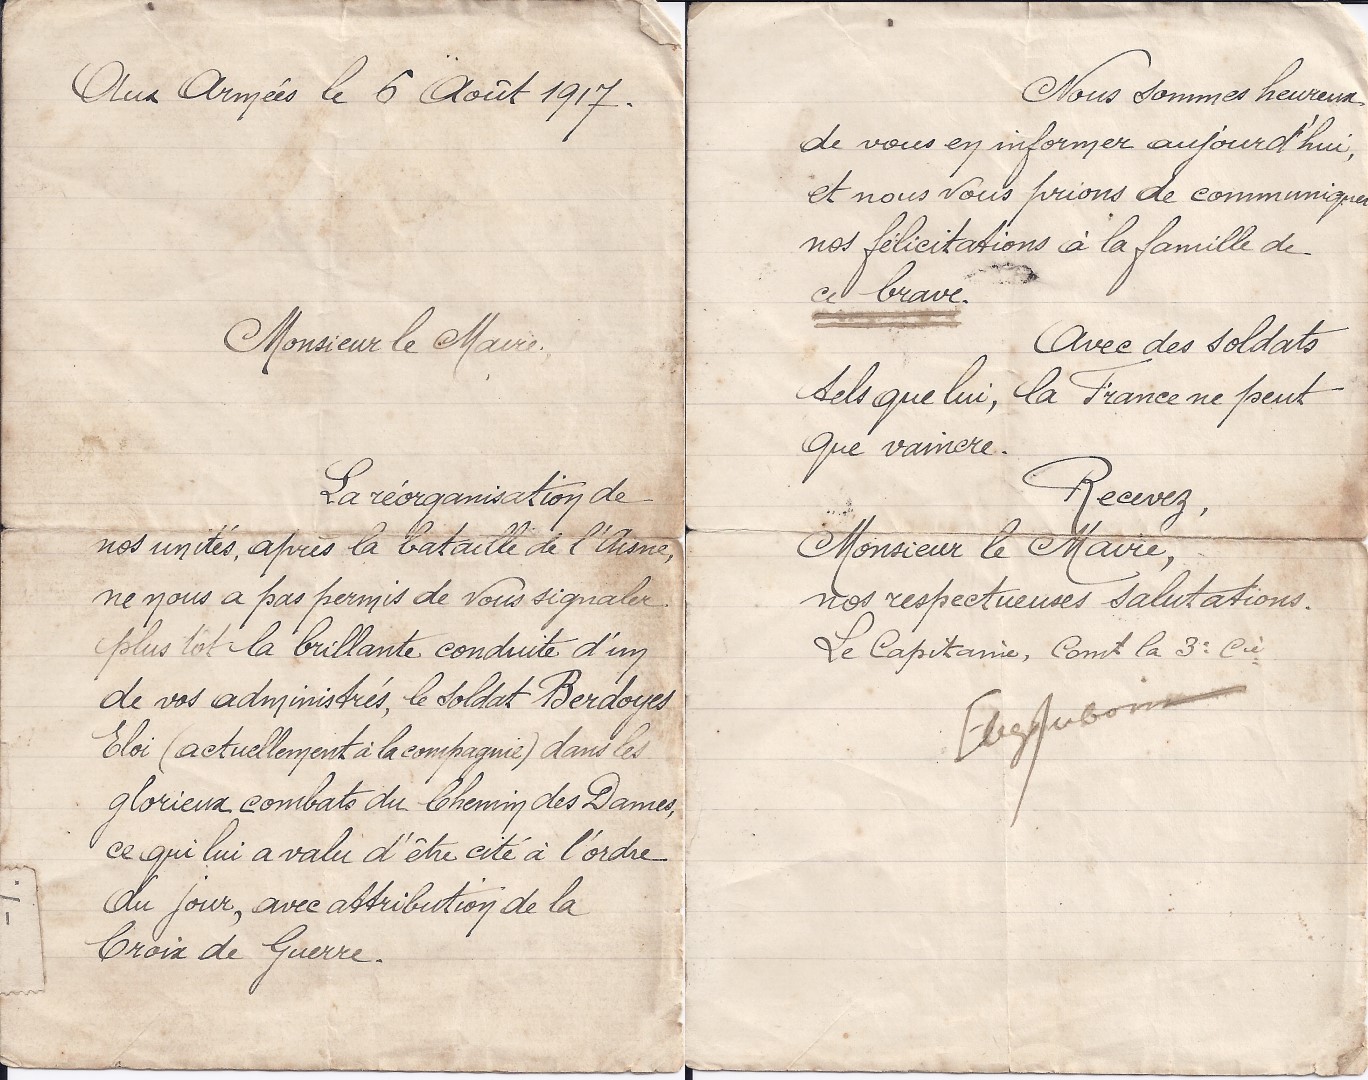 Aux Armées le 6 Août 1917.
Monsieur le Maire.
La réorganisation de
nos unités, après la bataille de l'Aisne,
ne nous a pas permis de vous signaler
plus tôt la brillante conduite d'un
de vos administrés, le soldat Berdoyes
Eloi (actuellement à la compagnie) dans les
glorieux combats du Chemin des Dames,
ce qui lui a valu d'être cité à l'ordre
du jour, avec attribution de la
Croix de Guerre.
Nous sommes heureux
de vous en informer aujourd'hui,
et nous vous prions de communiquer
nos félicitations à la famille de
ce brave.
Avec des soldats
tels que lui, la France ne peut
que vaincre.
Recevez,
Monsieur le Maire,
nos respectueuses salutations.
Le Capitaine, Comt la 3e Cie